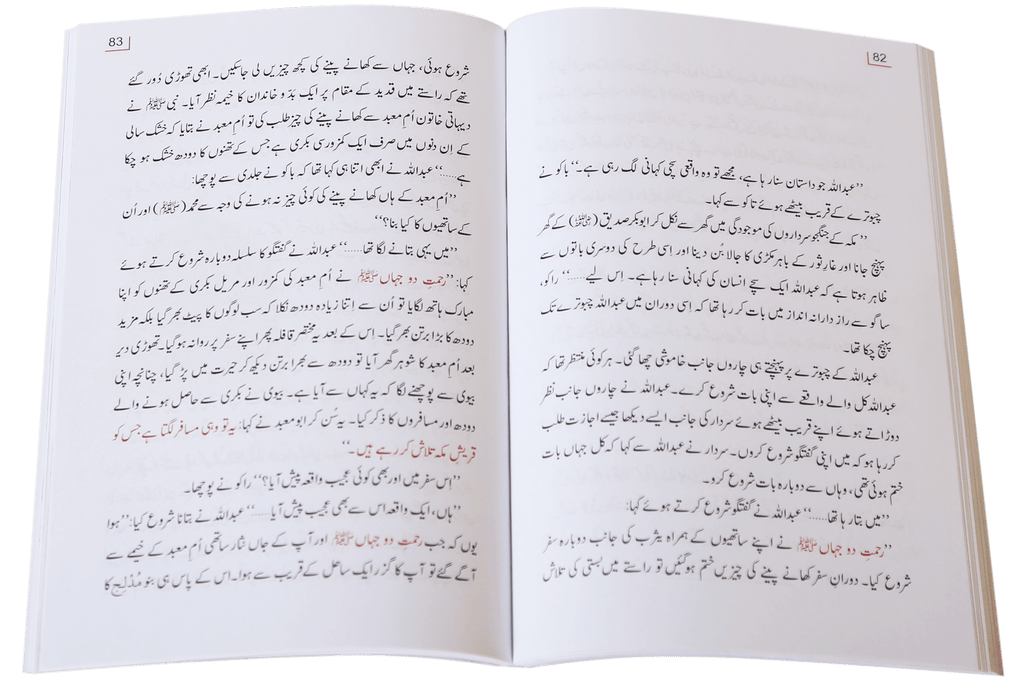 82
”عبداللہ جو داستان سنا رہا ہے، مجھے تو وہ واقعی سچی کہانی لگ رہی ہے۔“ باکو نے
چبوترے کے قریب بیٹھے ہوئے تاکو سے کہا۔
”مکہ کے جنگجو سرداروں کی موجودگی میں گھر سے نکل کر ابوبکر صدیق (رضی اللہ عنہ) کے گھر
پہنچ جانا اور غارِ ثور کے باہر مکڑی کا جالا بُن دینا اور اِسی طرح کی دوسری باتوں سے
ظاہر ہوتا ہے کہ عبداللہ ایک سچے انسان کی کہانی سنا رہا ہے۔ اِس لیے......“ راکو،
ساگو سے راز دارانہ انداز میں بات کر رہا تھا کہ اِسی دوران میں عبداللہ چبوترے تک
پہنچ چکا تھا۔
عبداللہ کے چبوترے پر پہنچتے ہی چاروں جانب خاموشی چھا گئی۔ ہر کوئی منتظر تھا کہ
عبداللہ کل والے واقعے سے اپنی بات شروع کرے۔ عبداللہ نے چاروں جانب نظر
دوڑاتے ہوئے اپنے قریب بیٹھے ہوئے سردار کی جانب ایسے دیکھا جیسے اجازت طلب
کر رہا ہو کہ میں اپنی گفتگو شروع کروں۔ سردار نے عبداللہ سے کہا کہ کل جہاں بات
ختم ہوئی تھی، وہاں سے دوبارہ بات شروع کرو۔
”میں بتا رہا تھا......“ عبداللہ نے گفتگو شروع کرتے ہوئے کہا:
”رحمتِ دو جہاں ﷺ نے اپنے ساتھیوں کے ہمراہ یثرب کی جانب دوبارہ سفر
شروع کیا۔ دورانِ سفر کھانے پینے کی چیزیں ختم ہوگئیں تو راستے میں بستی کی تلاش
83
شروع ہوئی، جہاں سے کھانے پینے کی کچھ چیزیں لی جاسکیں۔ ابھی تھوڑی دُور گئے
تھے کہ راستے میں قدید کے مقام پر ایک بدّو خاندان کا خیمہ نظر آیا۔ نبی ﷺ نے
دیہاتی خاتون اُم معبد سے کھانے پینے کی چیز طلب کی تو اُم معبد نے بتایا کہ خشک سالی
کے اِن دنوں میں صرف ایک کمزور سی بکری ہے جس کے تھنوں کا دودھ خشک ہو چکا
ہے......“ عبداللہ نے ابھی اتنا ہی کہا تھا کہ باکو نے جلدی سے پوچھا:
”اُم معبد کے ہاں کھانے پینے کی کوئی چیز نہ ہونے کی وجہ سے محمد (ﷺ) اور اُن
کے ساتھیوں کا کیا بنا؟“
”میں یہی بتانے لگا تھا......“ عبداللہ نے گفتگو کا سلسلہ دوبارہ شروع کرتے ہوئے
کہا: ”رحمتِ دو جہاں ﷺ نے اُم معبد کی کمزور اور مریل بکری کے تھنوں کو اپنا
مبارک ہاتھ لگایا تو اُن سے اِتنا زیادہ دودھ نکلا کہ سب لوگوں کا پیٹ بھر گیا بلکہ مزید
دودھ کا بڑا برتن بھر گیا۔ اِس کے بعد یہ مختصر قافلہ پھر اپنے سفر پر روانہ ہوگیا۔ تھوڑی دیر
بعد اُم معبد کا شوہر گھر آیا تو دودھ سے بھرا برتن دیکھ کر حیرت میں پڑ گیا، چنانچہ اپنی
بیوی سے پوچھنے لگا کہ یہ کہاں سے آیا ہے۔ بیوی نے بکری سے حاصل ہونے والے
دودھ اور مسافروں کا ذکر کیا۔ یہ سُن کر ابو معبد نے کہا: یہ تو وہی مسافر لگتا ہے جس کو
قریشِ مکہ تلاش کر رہے ہیں۔“
”اِس سفر میں اور بھی کوئی عجیب واقعہ پیش آیا؟“ راکو نے پوچھا۔
”ہاں، ایک واقعہ اس سے بھی عجیب پیش آیا......“ عبداللہ نے بتانا شروع کیا: ”ہوا
یوں کہ جب رحمتِ دو جہاں ﷺ اور آپ کے جاں نثار ساتھی اُم معبد کے خیمے سے
آگے گئے تو آپ کا گزر ایک ساحل کے قریب سے ہوا۔ اس کے پاس ہی بنو مُدْلِج کا